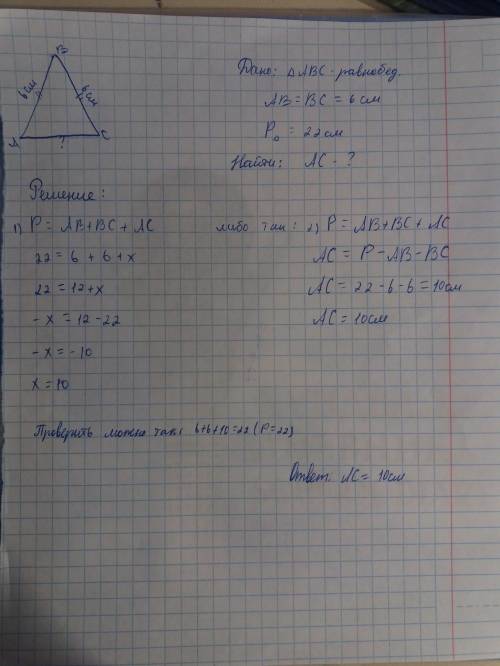 B
6 см 6 см
A ? C
Дано: △ABC - равнобед.
AB = BC = 6 см
P△ = 22 см
Найти: AC - ?
Решение:
1) P = AB + BC + AC
22 = 6 + 6 + x
22 = 12 + x
-x = 12 - 22
-x = -10
x = 10
либо так: 2) P = AB + BC + AC
AC = P - AB - BC
AC = 22 - 6 - 6 = 10 см
AC = 10 см
Проверить можно так: 6+6+10=22 (P=22)
Ответ: AC = 10 см